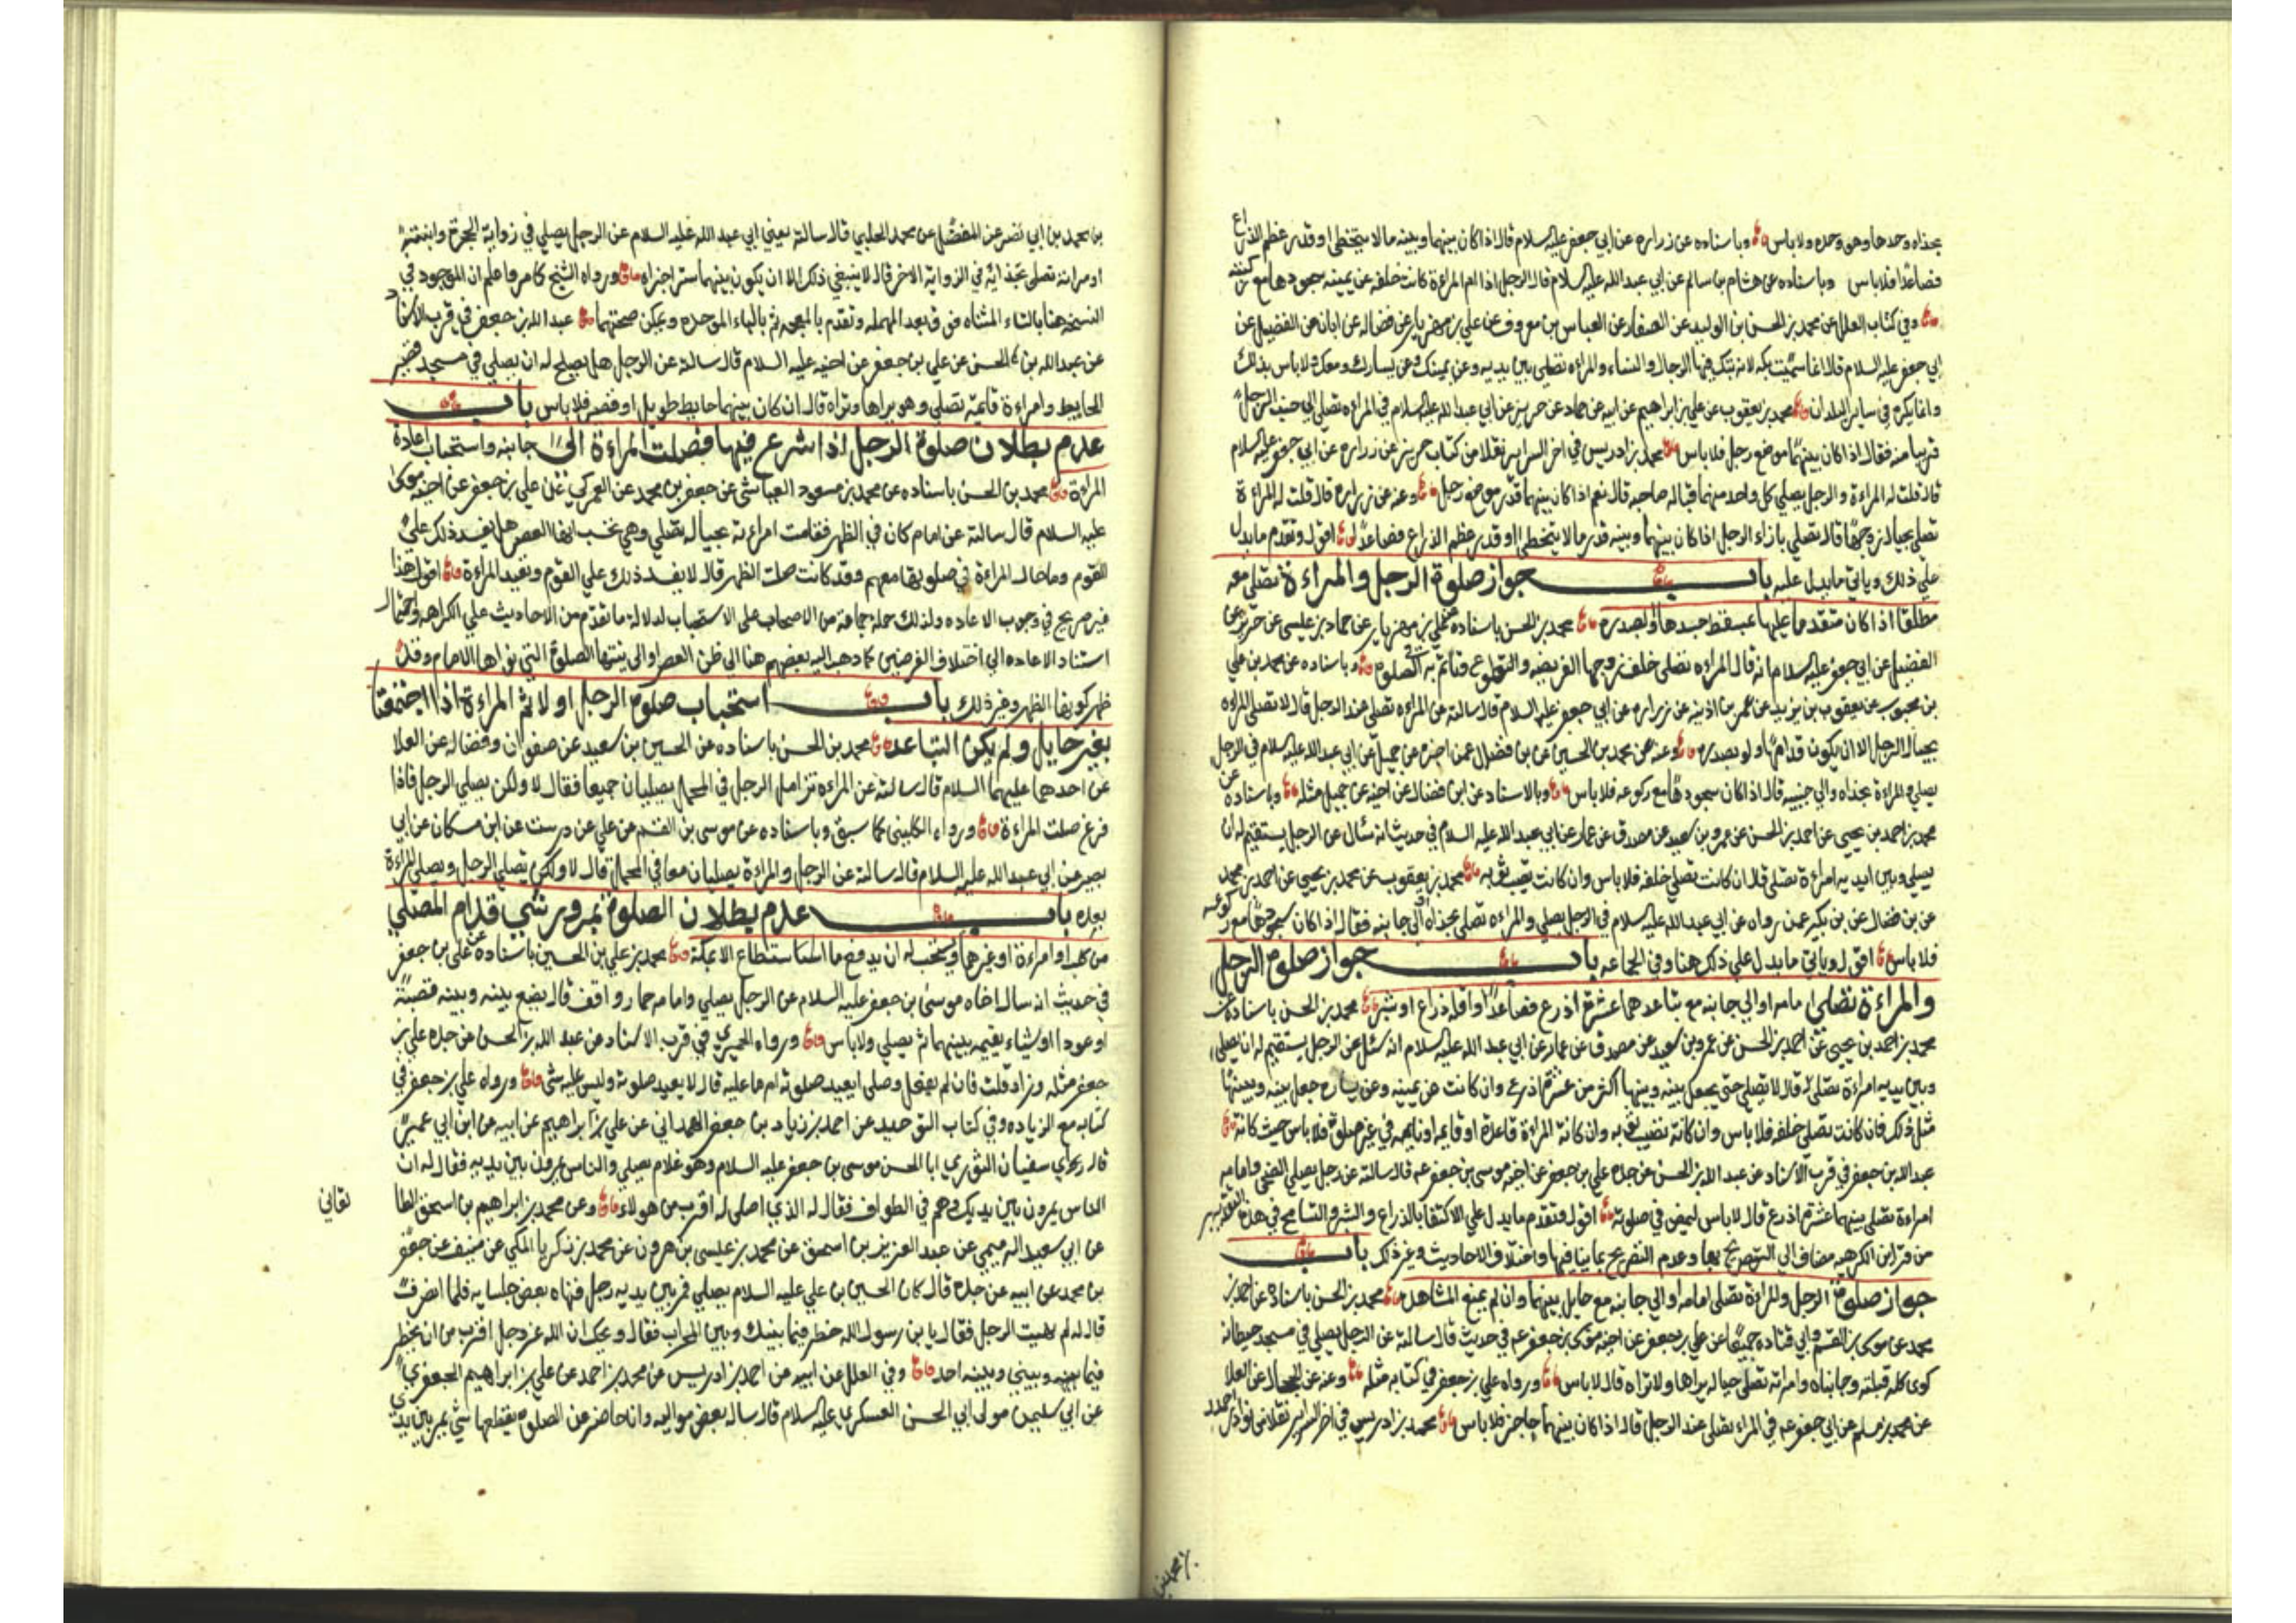 بحذاه وحدها وهو وحده ولا باس وباسناده عن زراره عن ابي جعفر عليه السلام قال اذا كان بينها وبينه ما لا يتخطى او قدر عظم الذراع
فصاعدا فلا باس وباسناده عن هشام بن سالم عن ابي عبد الله عليه السلام قال الرجل اذا ام المراءة كانت خلفه عن يمينه سجودها مع ركبتيه
وفي كتاب العلل عن محمد بن الحسن بن الوليد عن الصفار عن العباس بن معروف عن علي بن مهزيار عن فضاله عن ابان عن الفضيل عن
ابي جعفر عليه السلام قال انما سميت بكه لانه تبتك فيها الرجال والنساء والمراه تصلي بين يديه وعن يمينك وعن يسارك ومعك ولا باس بذلك
وانما يكره في ساير البلدان محمد بن يعقوب عن علي بن ابراهيم عن ابيه عن حماد عن حريز عن ابي عبد الله عليه السلام في المراءه تصلي الي جنب الرجل
قريبا منه فقال اذا كان بينهما موضع رجل فلا باس محمد بن ادريس في اخر السراير نقلا من كتاب حريز عن زراره عن ابي جعفر عليه السلام
قال قلت له المراءة والرجل يصلي كل واحد منهما قباله صاحبه قال نعم اذا كان بينهما قدر موضع رجل وعنه عن زراره قال قلت له المراءة
تصلي بحيال زوجها قال تصلي بازاء الرجل اذا كان بينها وبينه قدر ما لا يتخطى او قدر عظم الذراع فصاعدا اقول وتقدم ما يدل
علي ذلك وياتي ما يدل عليه باب جواز صلوة الرجل والمراءة تصلي معه
مطلقا اذا كان متقدما عليها بمسقط جسدها او بصدره محمد بن الحسن باسناده عن علي بن مهزيار عن حماد بن عيسى عن حريز عن
الفضيل عن ابي جعفر عليه السلام انه قال المراءه تصلي خلف زوجها الفريضه والتطوع وتاتم به في الصلوة وباسناده عن محمد بن علي
بن محبوب عن يعقوب بن يزيد عن عمر بن اذينه عن زراره عن ابي جعفر عليه السلام قال سالته عن المراءه تصلي عند الرجل قال لا تصلي المراءه
بحيال الرجل الا ان يكون قدامها ولو بصدره وعنه عن محمد بن الحسين عن بن فضال عمن اخبره عن جميل عن ابي عبد الله عليه السلام في الرجل
يصلي والمراءة بحذاه والي جنبيه قال اذا كان سجودها مع ركوعه فلا باس وبالاسناد عن ابن فضال عن اخيه عن جميل مثله وباسناده عن
محمد بن احمد بن يحيى عن احمد بن الحسن عن عمرو بن سعيد عن مصدق عن عمار عن ابي عبد الله عليه السلام في حديث انه سال عن الرجل يستقيم له ان
يصلي وبين ايديه امراءة تصلي قال ان كانت تصلي خلفه فلا باس وان كانت تصيب ثوبه محمد بن يعقوب عن محمد بن يحيى عن احمد بن محمد
عن بن فضال عن بن بكير عمن رواه عن ابي عبد الله عليه السلام في الرجل يصلي والمراءه تصلي بحذاه او الى جانبه فقال اذا كان سجودها مع ركوعه
فلا باس اقول وياتي ما يدل علي ذلك هنا وفي الجماعه باب جواز صلوة الرجل
والمراءة تصلي امامه او الي جانبه مع تباعدهما عشرة اذرع فصاعدا واقله ذراع او شبر محمد بن الحسن باسناده عن
محمد بن احمد بن يحيى عن احمد بن الحسن عن عمرو بن سعيد عن مصدق عن عمار عن ابي عبد الله عليه السلام انه سئل عن الرجل يستقيم له ان يصلي
وبين يديه امراءة تصلي قال لا يصلي حتى يجعل بينه وبينها اكثر من عشرة اذرع وان كانت عن يمينه وعن يساره جعل بينه وبينها
مثل ذلك فان كانت تصلي خلفه فلا باس وان كانت تصيب ثوبه وان كانة المراءة قاعدة او قايمه او نايمه في غير صلوة فلا باس حيث كانة
عبد الله بن جعفر في قرب الاسناد عن عبد الله بن الحسن عن جده علي بن جعفر عن اخيه موسى بن جعفر عه قال سالته عن رجل يصلي الضحي وامامه
امراءة تصلي بينهما عشرة اذرع قال لا باس ليمض في صلوته اقول وتقدم ما يدل علي الاكتفا بالذراع والشبر والتسامح في هذه
من قراين الكرهيه مضافا الي التصريح بها وعدم التصريح بما ينافيها واختلاف الاحاديث وغير ذلك باب
جواز صلوة الرجل والمراءة تصلي امامه او الي جانبه مع حايل بينهما وان لم يمنع المشاهده محمد بن الحسن باسناده عن احمد بن
محمد عن موسى بن القسم وابي قتاده جميعا عن علي بن جعفر عن اخيه موسى بن جعفر عه في حديث قال سالته عن الرجل يصلي في مسجد حيطانه
كوى كله قبلته وجانباه وامراته تصلي حياله يراها ولا تراه قال لا باس ورواه علي بن جعفر في كتابه مثله وعنه عن الحجال عن العلا
عن محمد بن مسلم عن ابي جعفر عه في المراءه تصلي عند الرجل قال اذا كان بينهما حاجز فلا باس محمد بن ادريس في اخر السراير نقلا من نوادر احمد
بن محمد بن
بن محمد بن ابي نصر عن المفضل عن محمد الحلبي قال سالته يعني ابي عبد الله عليه السلام عن الرجل يصلي في زواية الحجرة وابنته
او مراته تصلي بحذائه في الزواية الاخر قال لا ينبغي ذلك الا ان يكون بينهما ستر اجزاه ورواه الشيخ كما مر واعلم ان الموجود في
النسخه هنا بالتاء المثناه من فوق بعد المهمله وتقدم بالمعجمه ثم بالباء الموحده ويمكن صحتهما عبد الله بن جعفر في قرب الاسناد
عن عبد الله بن الحسن عن علي بن جعفر عن اخيه عليه السلام قال سالته عن الرجل هل يصلح له ان يصلي في مسجد قصير
الحايط وامراءة قايمة تصلي وهو يراها وتراه قال ان كان بينهما حايط طويل او قصير فلا باس باب
عدم بطلان صلوة الرجل اذا شرع فيها فصلت المراءة الى جانبه واستحباب اعادة
المراءة محمد بن الحسن باسناده عن محمد بن مسعود العياشي عن جعفر بن محمد عن العمركي عن علي بن جعفر عن اخيه موسى
عليه السلام قال سالته عن امام كان في الظهر فقامت امراءته بحياله تصلي وهي تحسب انها العصر هل يفسد ذلك علي
القوم وما حال المراءة في صلوتها معهم وقد كانت صلت الظهر قال لا يفسد ذلك علي القوم وتعيد المراءة اقول هذا
غير صريح في وجوب الاعاده ولذلك حمله جماعة من الاصحاب على الاستحباب لدلالة ما تقدم من الاحاديث علي الكراهه واحتمال
استناد الاعاده الي اختلاف الفرضين كما ذهب اليه بعضهم هنا الي ظن العصر او الى نيتها الصلوة التي نواها الامام وقد
ظهر كونها الظهر وغير ذلك باب استحباب صلوة الرجل اولا ثم المراءة اذا اجتمعتا
بغير حايل ولم يكن التباعد محمد بن الحسن باسناده عن الحسين بن سعيد عن صفوان وفضاله عن العلا
عن احدهما عليهما السلام قال سالته عن المراءه تزامل الرجل في المحمل يصليان جميعا فقال لا ولكن يصلي الرجل فاذا
فرغ صلت المراءة ورواه الكليني كما سبق وباسناده عن موسى بن القسم عن علي عن درست عن ابن مسكان عن ابي
بصير عن ابي عبد الله عليه السلام قال سالته عن الرجل والمراءة يصليان معا في المحمل قال لا ولكن يصلي الرجل وتصلي المراءة
بعده باب عدم بطلان الصلوة بمرور شيي قدام المصلي
من كلب او امراءة او غيرها ويستحب له ان يدفع ما استطاع الا بمكة محمد بن علي بن الحسين باسناده عن علي بن جعفر
في حديث انه سال اخاه موسى بن جعفر عليه السلام عن الرجل يصلي وامامه حمار واقف قال يضع بينه وبينه قصبة
او عودا او شيئاء يقيمه بينهما ثم يصلي ولا باس ورواه الحميري في قرب الاسناد عن عبد الله بن الحسن عن جده علي بن
جعفر مثله وزاد قلت فان لم يفعل وصلى ايعيد صلوته ام ما عليه قال لا يعيد صلوته وليس عليه شي ورواه علي بن جعفر في
كتابه مع الزياده وفي كتاب التوحيد عن احمد بن زياد بن جعفر الهمداني عن علي بن ابراهيم عن ابيه عن ابن ابي عمير
قال راي سفيان الثوري ابا الحسن موسى بن جعفر عليه السلام وهو غلام يصلي والناس يمرون بين يديه فقال له ان
الناس يمرون بين يديك وهم في الطواف فقال له الذي اصلي له اقرب من هولاء وعن محمد بن ابراهيم بن اسحق الطا
لقاني
عن ابي سعيد الرميحي عن عبد العزيز بن اسحق عن محمد بن عيسى بن هرون عن محمد بن زكريا المكي عن منيف عن جعفر
بن محمد عن ابيه عن جده قال كان الحسين بن علي عليه السلام يصلي فمر بين يديه رجل فنهاه بعض جلسايه فلما انصرف
قال له لم نهيت الرجل فقال يا بن رسول الله خطر فيما بينك وبين المحراب فقال ويحك ان الله عز وجل اقرب من ان يخطر
فيما بينه وبيني وبينه احد وفي العلل عن ابيه عن احمد بن ادريس عن محمد بن احمد عن علي بن ابراهيم الجعفري
عن ابي سليمن مولى ابي الحسن العسكري عليه السلام قال ساله بعض مواليه وانا حاضر عن الصلوة يقطعها شي يمر بين يدي